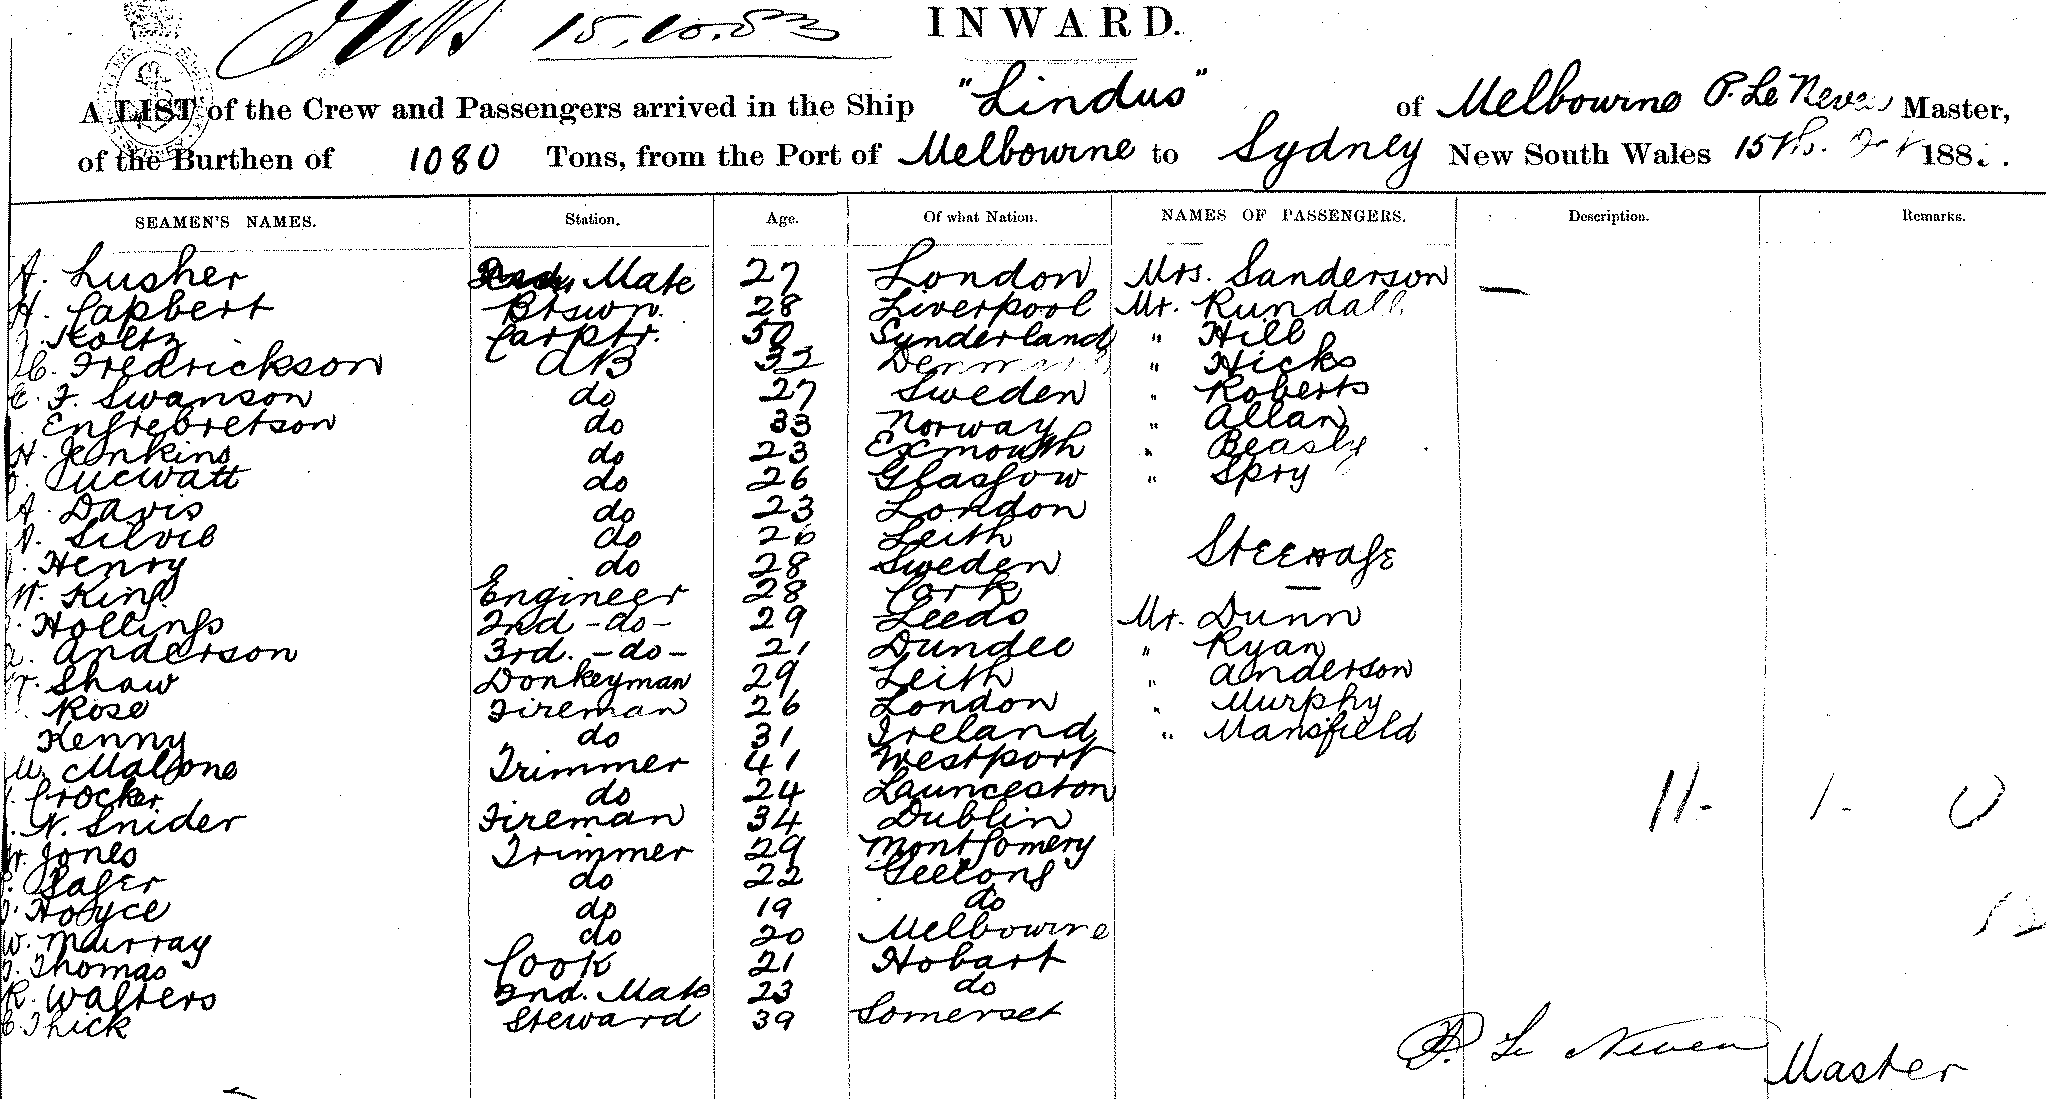 15.10.83 INWARD.
A LIST of the Crew and Passengers arrived in the Ship "Lindus" of Melbourne P. Le Neven Master,
of the Burthen of 1080 Tons, from the Port of Melbourne to Sydney New South Wales 15th. Oct 188
SEAMEN'S NAMES. Station. Age. Of what Nation. NAMES OF PASSENGERS. Description. Remarks.
A. Lusher Mate 27 London Mrs. Sanderson —
H. Capbert Btswn. 28 Liverpool Mr. Rundall
Holtz Carptr. 50 Sunderland " Hill
C. Fredrickson AB 32 Denmark " Hicks
E. F. Swanson do 27 Sweden " Roberts
Engrebretson do 33 Norway " Allan
H. Jenkins do 23 Exmouth " Beasly
do 26 Glasgow " Spry
A. Davis do 23 London
Silvie do 26 Leith
Henry do 28 Sweden Steerage
W. King Engineer 28 Cork —
Hollings 2nd -do- 29 Leeds Mr. Dunn
Anderson 3rd. -do- 21 Dundee " Ryan
Shaw Donkeyman 29 Leith " Anderson
Rose Fireman 26 London " Murphy
Kenny do 31 Ireland " Mansfield
Malone Trimmer 41 Westport
Crocker do 24 Launceston 11- 1- 0
N. Snider Fireman 34 Dublin
Jones Trimmer 29 Montgomery
Sager do 22 Geelong
Hoyce do 19 do
W. Murray do 20 Melbourne
Thomas Cook 21 Hobart
R. Walters 2nd. Mate 23 do
Thick Steward 39 Somerset
P. Le Neven Master